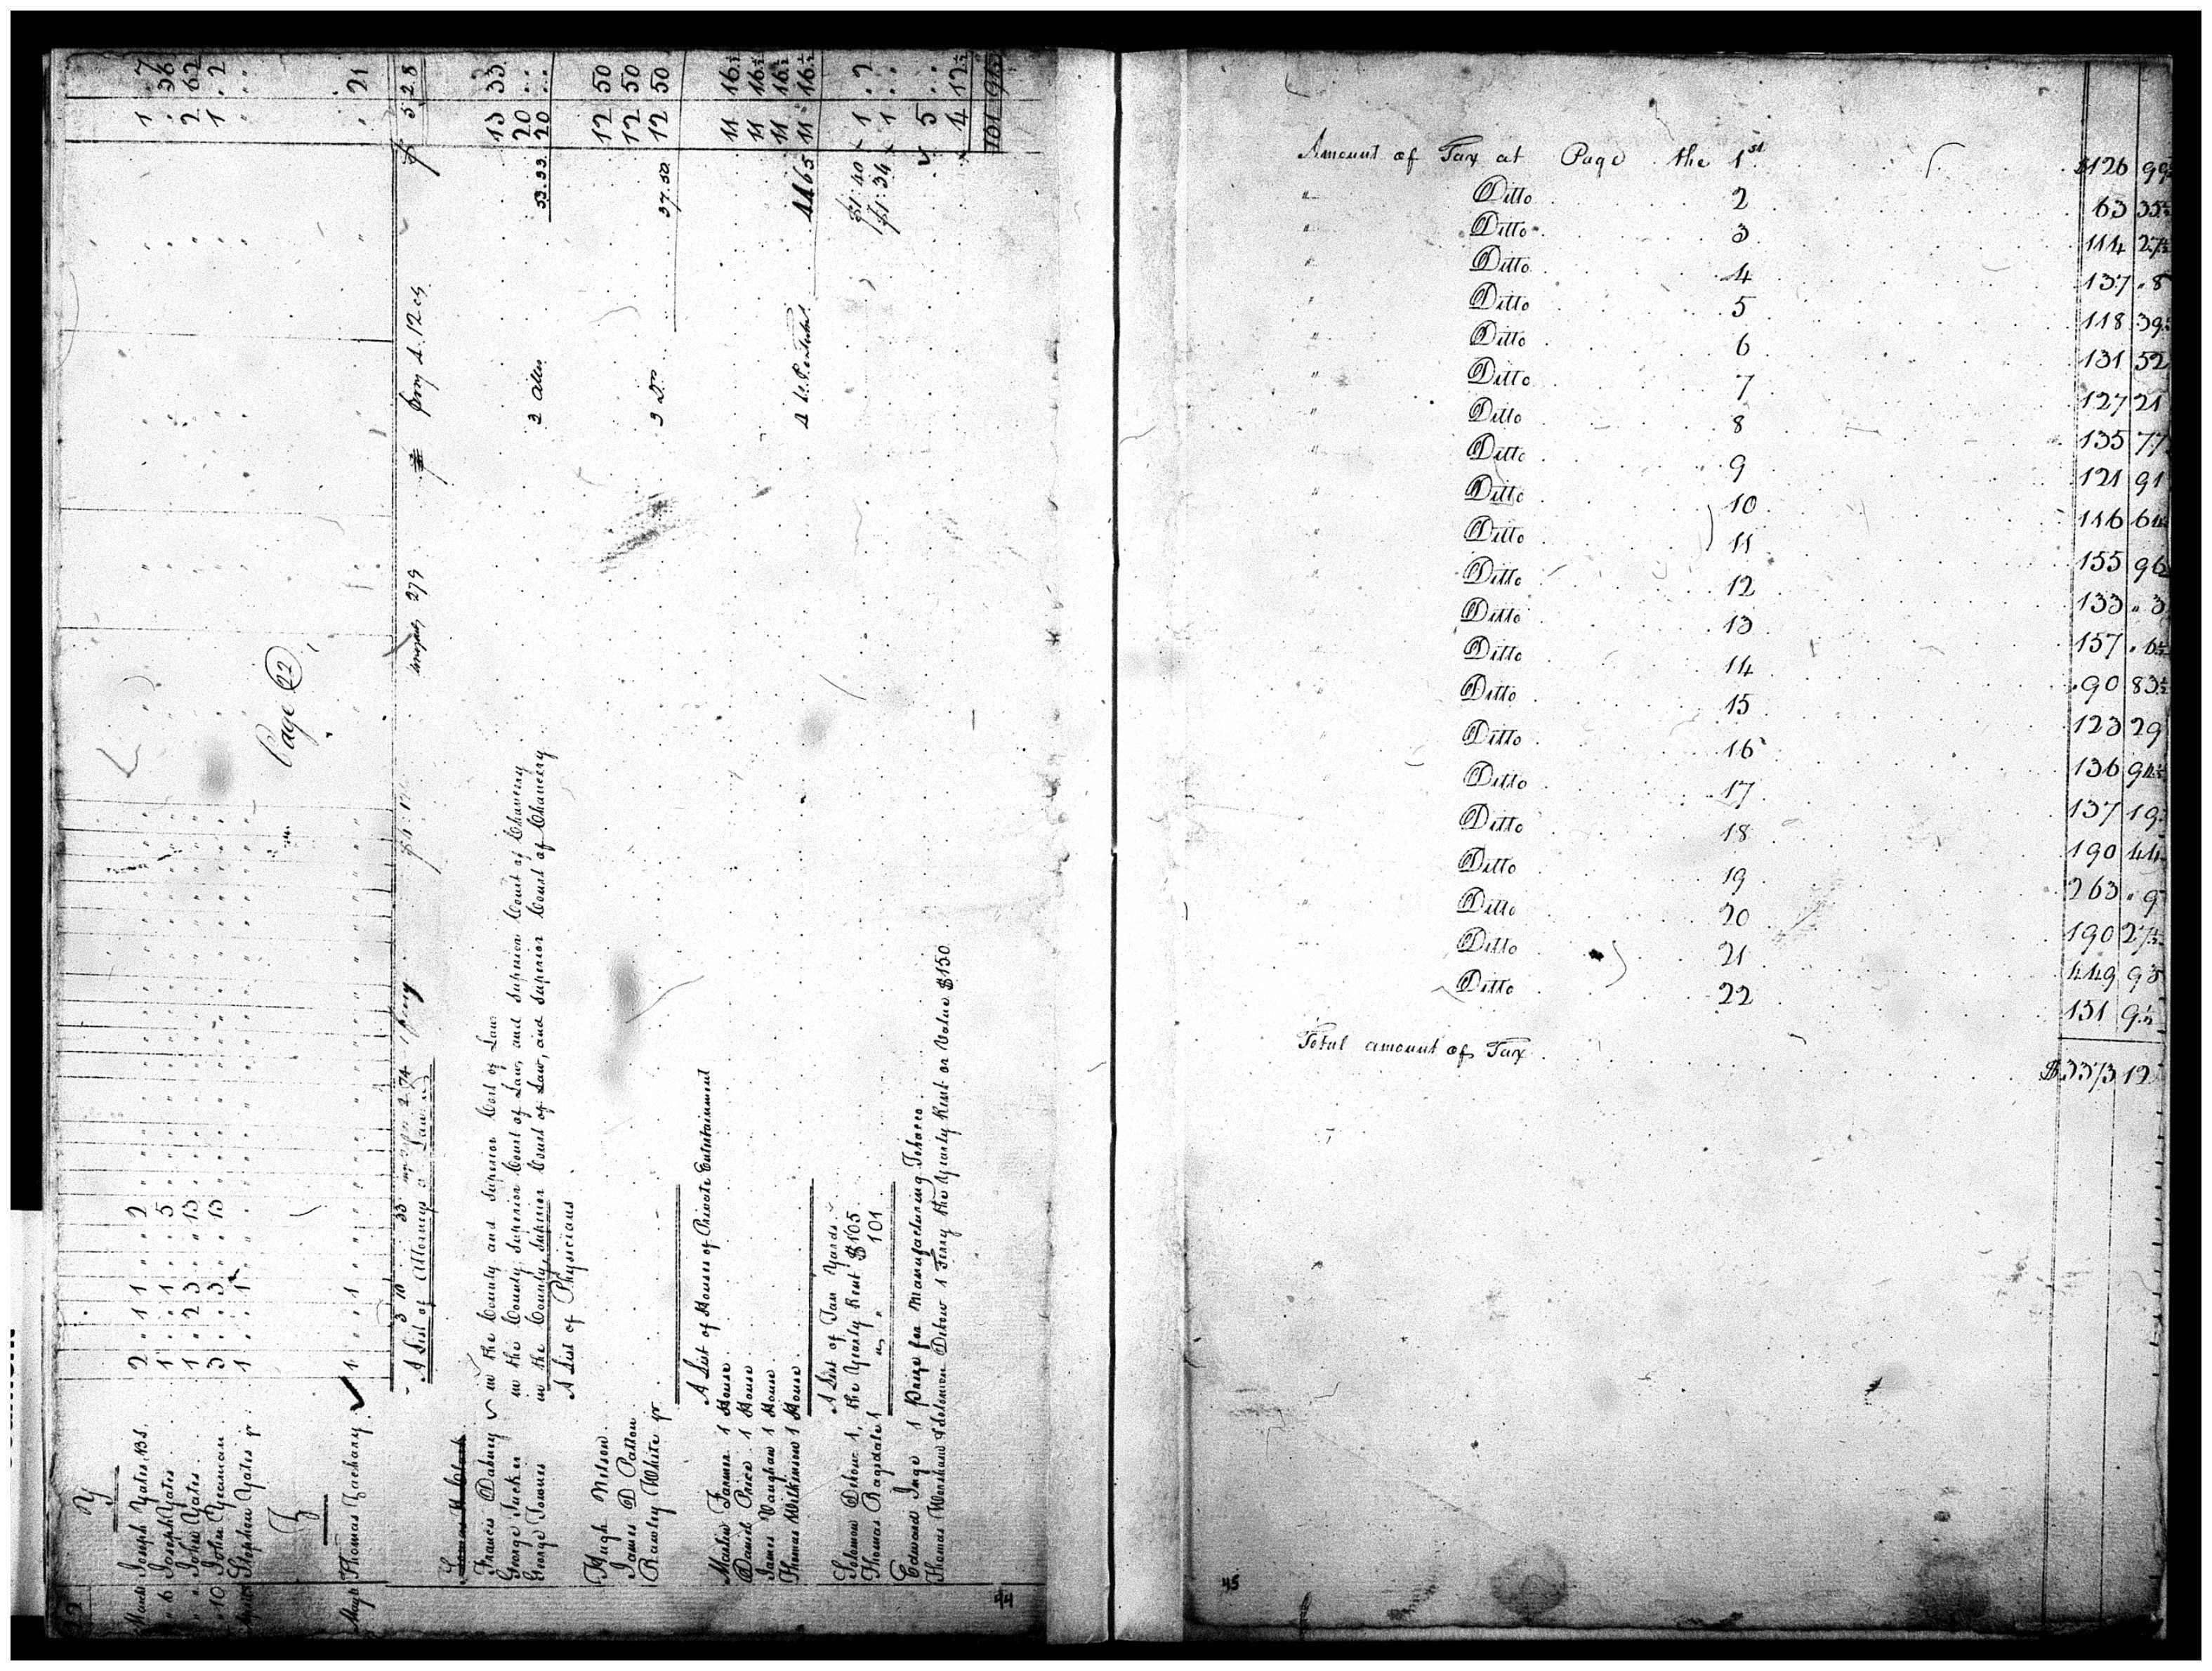 22
Y
March Joseph Yates 2 " 1 1 " " 2 1 7
" 6 Joseph Yates 1 " " 1 " " 5 " 36
" " John Yates 1 " 2 3 " " 13 2 62
" 10 John Yeaman 3 " " 3 " " 13 1 " 2
Stephen Yates jr 1 " " 1
Page 22
Z
Thomas Zachary 1 " " 1 " 21
3 10 33 2.74 279 $ 5 28
A List of Attorneys
Francis Dabney in the County and Superior Cort of Law 13 33
George Tucker in the County, Superior Court of Law, and Superior Court of Chancery 20 ..
George Townes in the County, Superior Court of Law, and Superior Court of Chancery 3 53.33 20 ..
A List of Physicians
Hugh Nelson 12 50
James D Patton 12 50
Rawley White jr 3 Do 37.50 12 50
A List of Houses of Private Entertainment
Martin Farmer 1 House 11 16½
Daniel Price 1 House 11 16½
James Vaughan 1 House 11 16½
Thomas Wilkinson 1 House 4 44 65 11 16½
A List of Tan Yards
Solomon Debow 1, the Yearly Rent $105 $1:40 1 . 2
Thomas Ragsdale 1 " " 101 $1:34 1 ..
Edward Inge 1 Prize for Manufacturing Tobacco 5 ..
Thomas Worsham & Solomon Debow 1 Ferry the Yearly Rent or Value $150 4 12½
101
44
Amount of Tax at Page the 1st $126 99
" Ditto 2 63 35½
" Ditto 3 114 27½
" Ditto 4 137 " 8
" Ditto 5 118 39
" Ditto 6 131 52
" Ditto 7 127 21
" Ditto 8 135 77
" Ditto 9 121 91
" Ditto 10 116 64
" Ditto 11 155 96
" Ditto 12 133 " 3
" Ditto 13 157 " 6½
" Ditto 14 90 83½
" Ditto 15 123 29
" Ditto 16 136 94½
" Ditto 17 137 19
" Ditto 18 190 44
" Ditto 19 263 " 9
" Ditto 20 190 27½
" Ditto 21 449 93
" Ditto 22 131 9½
Total amount of Tax $3373 12
45